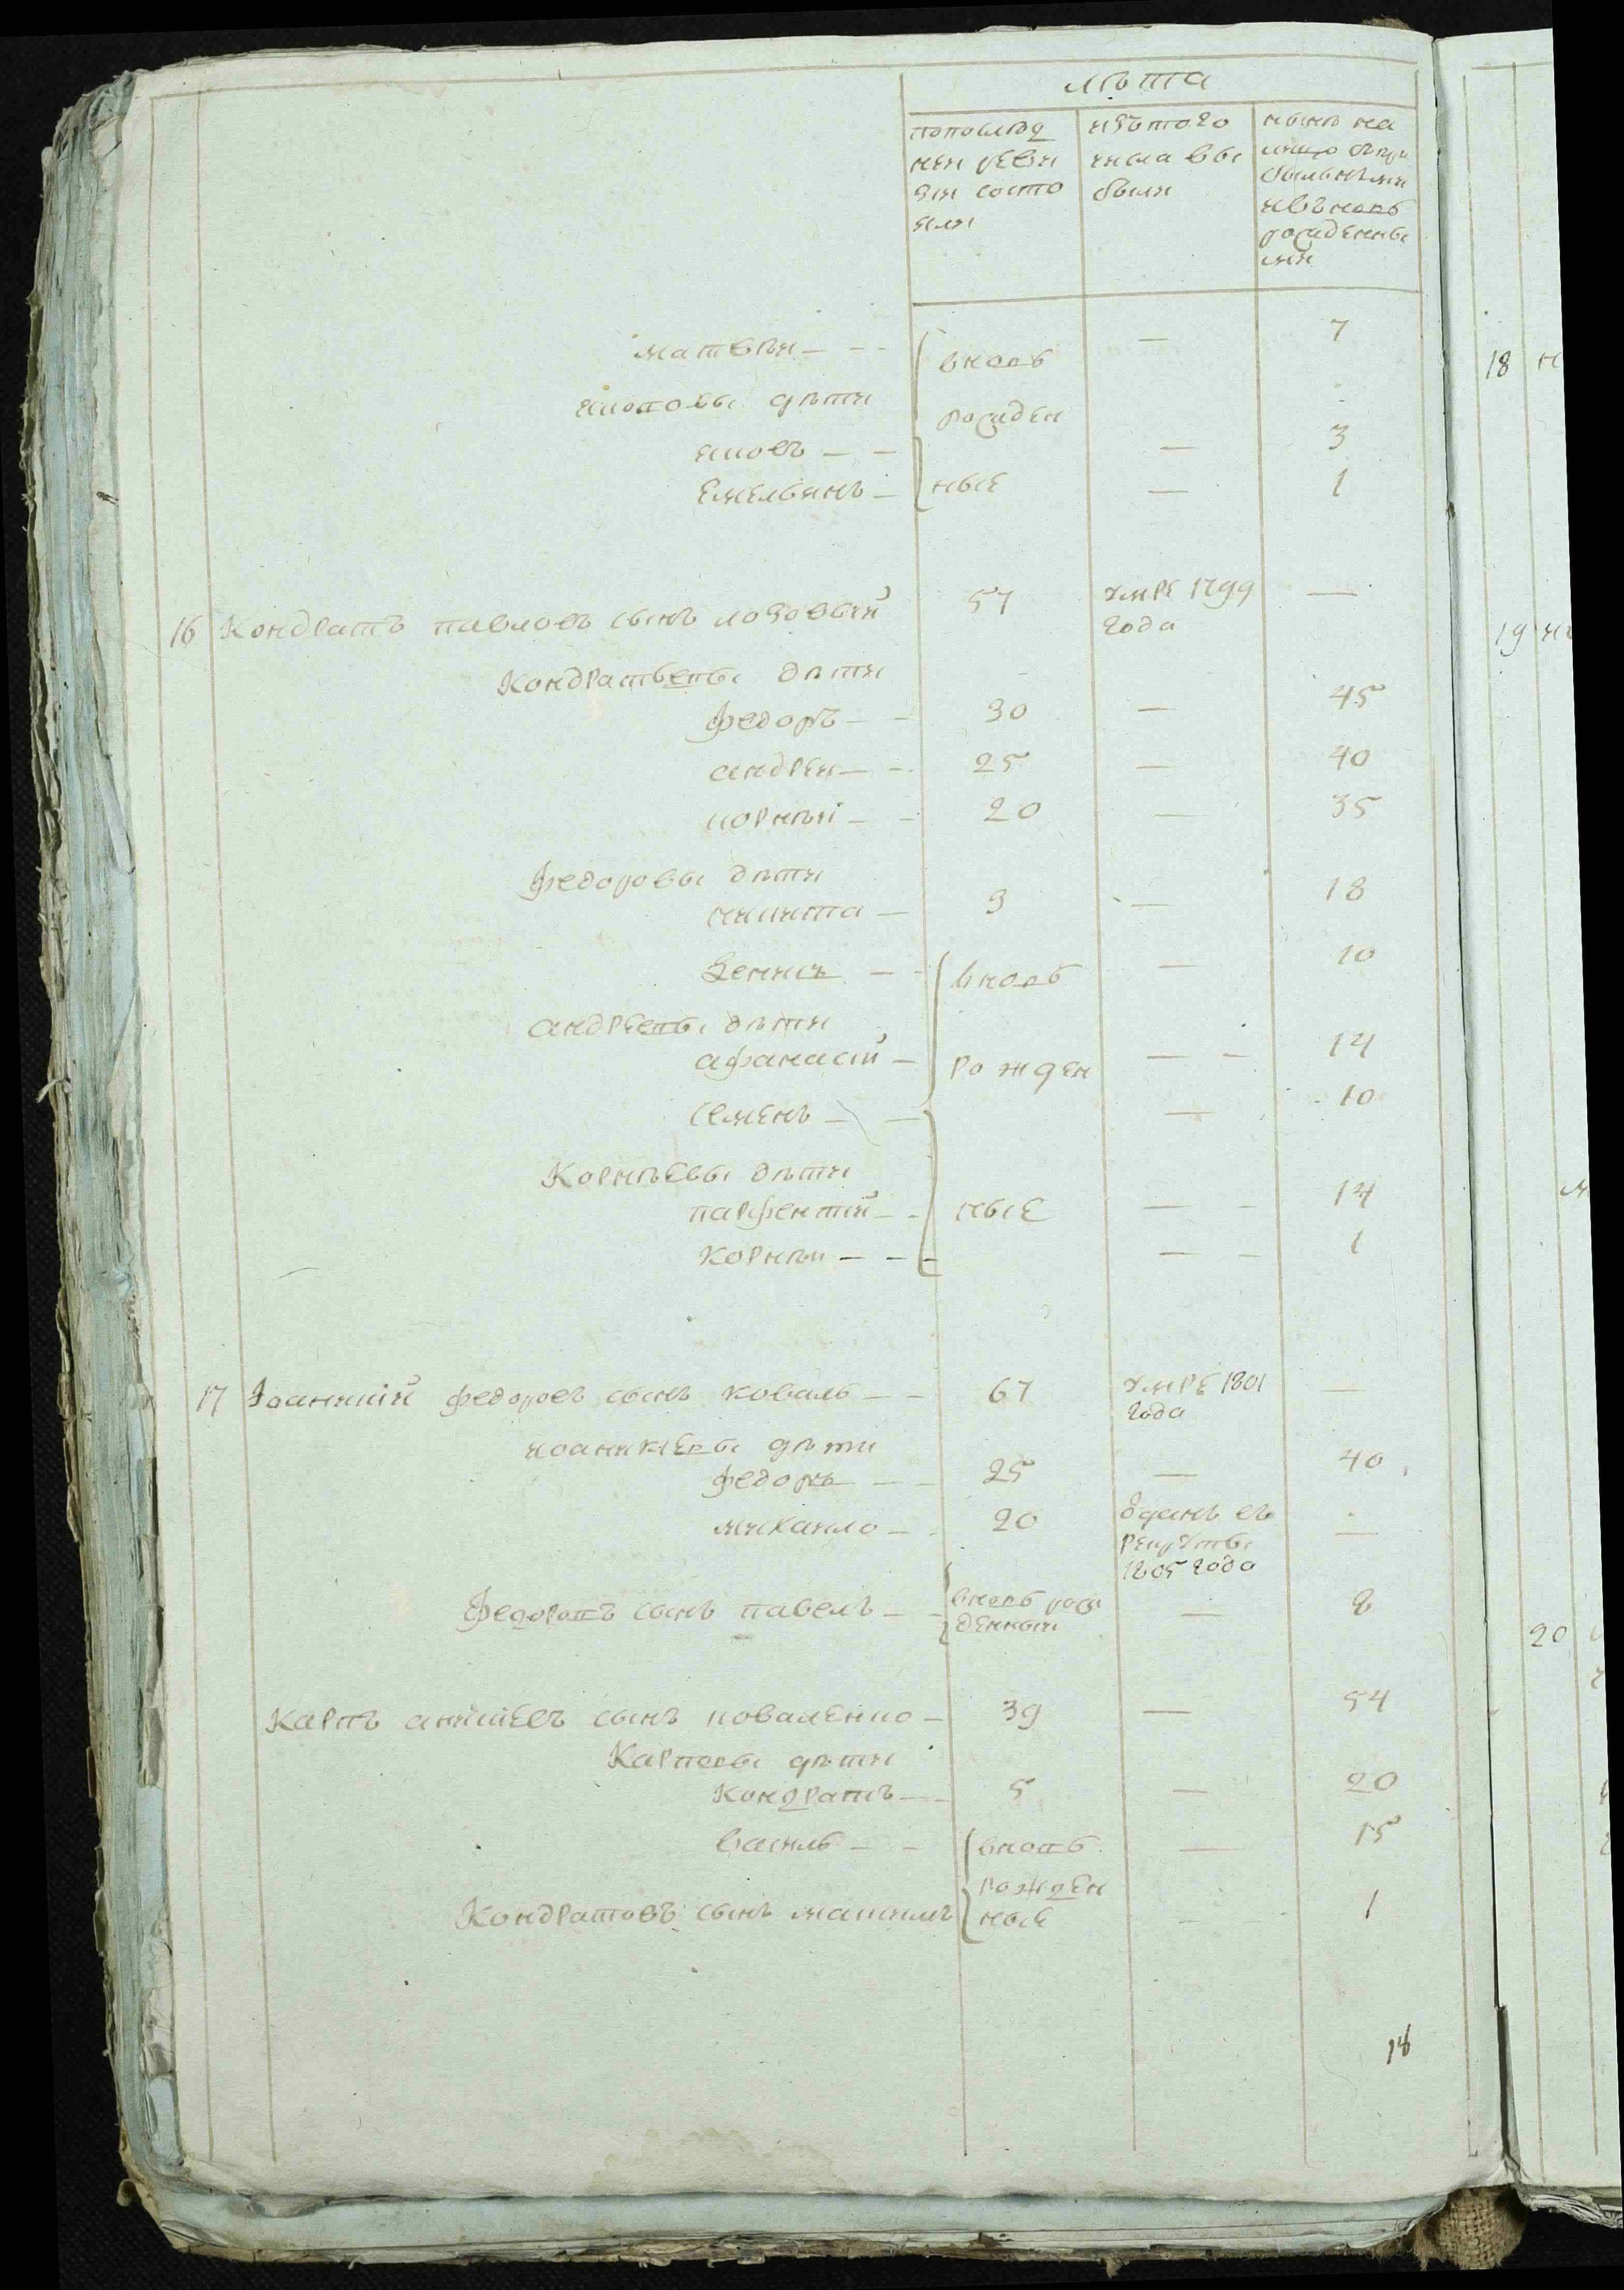 лѣта
попослѣд
неи реви
зіи состо
яли
изътого
числа вы
были
нынѣ на
лицо съпри
былыми
ивъновь
рожденны
ми
матвѣи — — 7
вновь
яковы дѣти
рожден
яковъ — — 3
емельянъ — ные — 1
16 Кондратъ павловъ сынъ лозовый 57 умре 1799 —
года
Кондратьевы дѣти
федоръ — 30 — 45
андреи — 25 — 40
корнѣй — 20 — 35
федоровы дѣти
никита — 3 — 18
денисъ — вновь — 10
андреевы дѣти
афанасій — рожден — 14
семенъ — — 10
Корнѣевы дѣти
парфентій — ные — 14
корнѣи — — 1
17 Іоанникій федоровъ сынъ коваль — 67 умре 1801 —
года
иоаникіевы дѣти
федоръ — 25 — 40
михаило — 20 одданъ въ —
рекруты
1805 года
Федоровъ сынъ павелъ — вновь рож — 8
денныи
Карпъ сынъ коваленко — 39 — 54
Карповы дѣти
Кондратъ — 5 — 20
василь — вновь — 15
рожден
Кондратовъ сынъ максимъ ные — 1
18
18
19
20